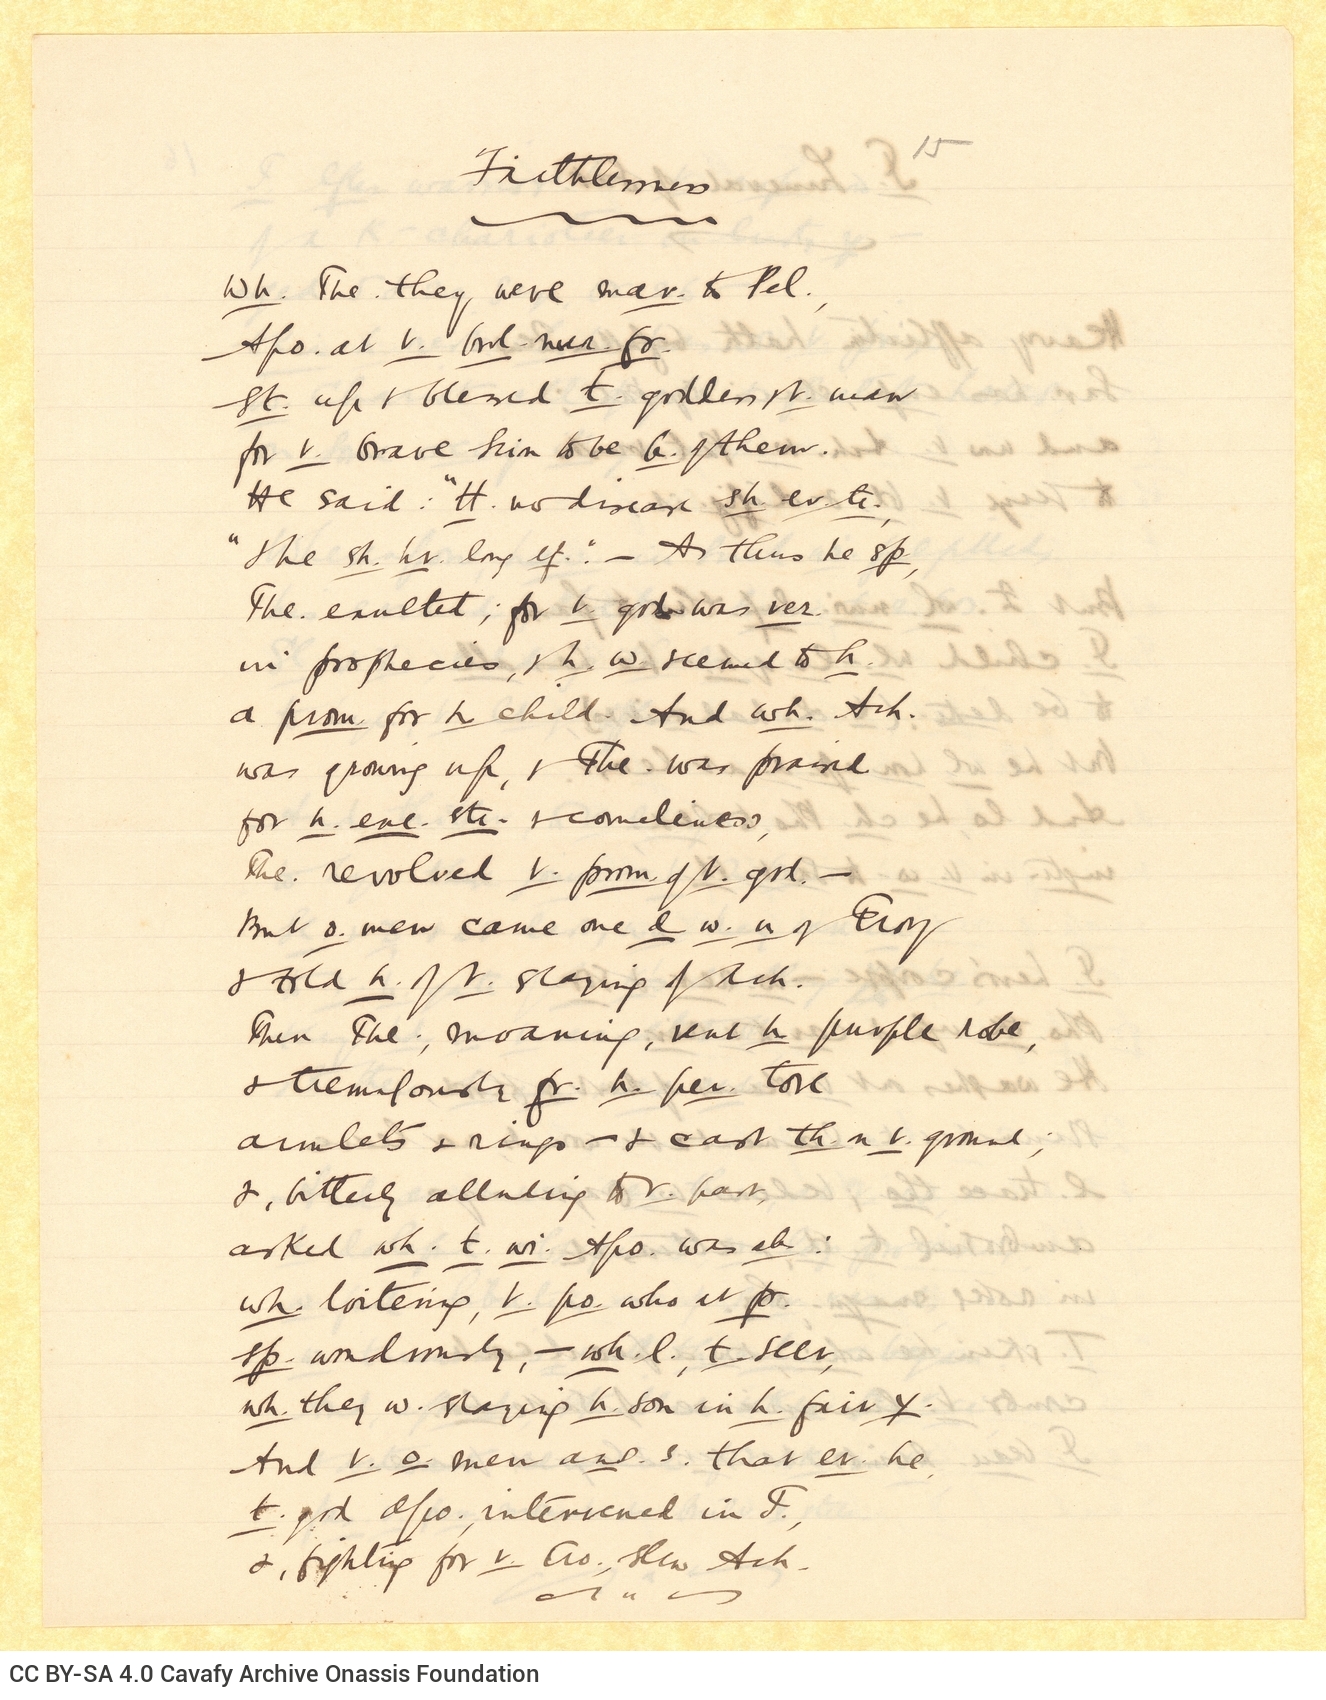 15
Faithlessness
Wh. The. they were mar. to Pel.,
Apo. at t. brl. mar. fr.
St. up & blessed t. goddess & t. man
for t. brave scion to be b. of them.
He said: "H. no disease sh. ev. to.,
"& he sh. hv. long lif." — As thus he sp,
The. exulted; for t. god was ver.
in prophecies, & h. w. seemed to h.
a prom. for h. child. And wh. Ach.
was growing up, & The. was praised
for h. exc. str. & comeliness,
The. revolved t. prom. of t. god. —
But o. men came one d. w. n. of Troy
& told h. of t. slaying of Ach.
Then The., moaning, rent h. purple robe,
& tremulously fr. h. per. tore
armlets & rings — & cast th. n t. ground;
&, bitterly alluding to t. past,
asked wh. t. wi. Apo. was ab:
wh. loitering, t. po. who at
sp. wondrously, — wh. l., t. seer,
wh. they w. slaying h. son in h. fair y.
And t. o. men ans. s. that ev. he,
t. god Apo., intervened in T.,
&, fighting for t. Tro., slew Ach.
CC BY-SA 4.0 Cavafy Archive Onassis Foundation